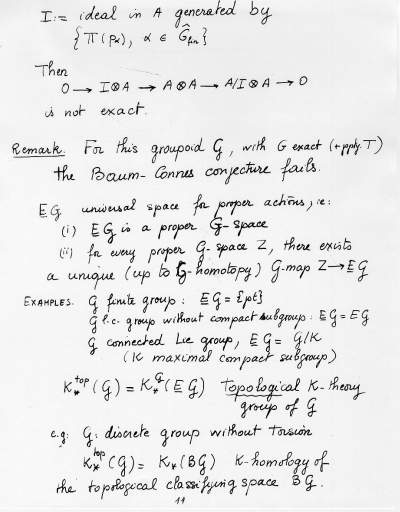 I := ideal in A generated by
{π(pα), α ∈ Ĝfin}
Then
0 → I⊗A → A⊗A → A/I⊗A → 0
is not exact.
Remark. For this groupoid G, with G exact (+ppty. T)
the Baum-Connes conjecture fails.
EG universal space for proper actions, ie:
(i) EG is a proper G-space
(ii) for every proper G-space Z, there exists
a unique (up to G-homotopy) G-map Z → EG
EXAMPLES. G finite group : EG = {pt}
G l.c. group without compact subgroup : EG = EG
G connected Lie group, EG = G/K
(K maximal compact subgroup)
K*^top(G) = K*^G(EG) topological K-theory
group of G
e.g: G: discrete group without torsion
K*^top(G) = K*(BG) K-homology of
the topological classifying space BG.
11